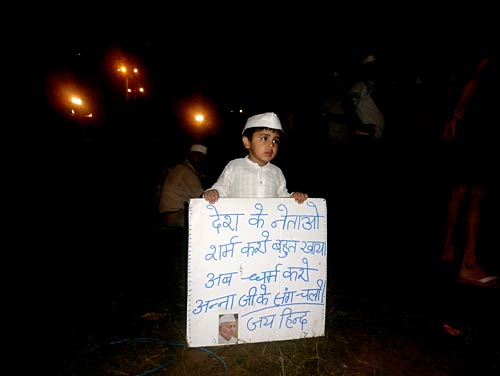 देश के नेताओ
शर्म करो बहुत खाया
अब धर्म करो
अन्ना जी के संग चलो।
जय हिन्द